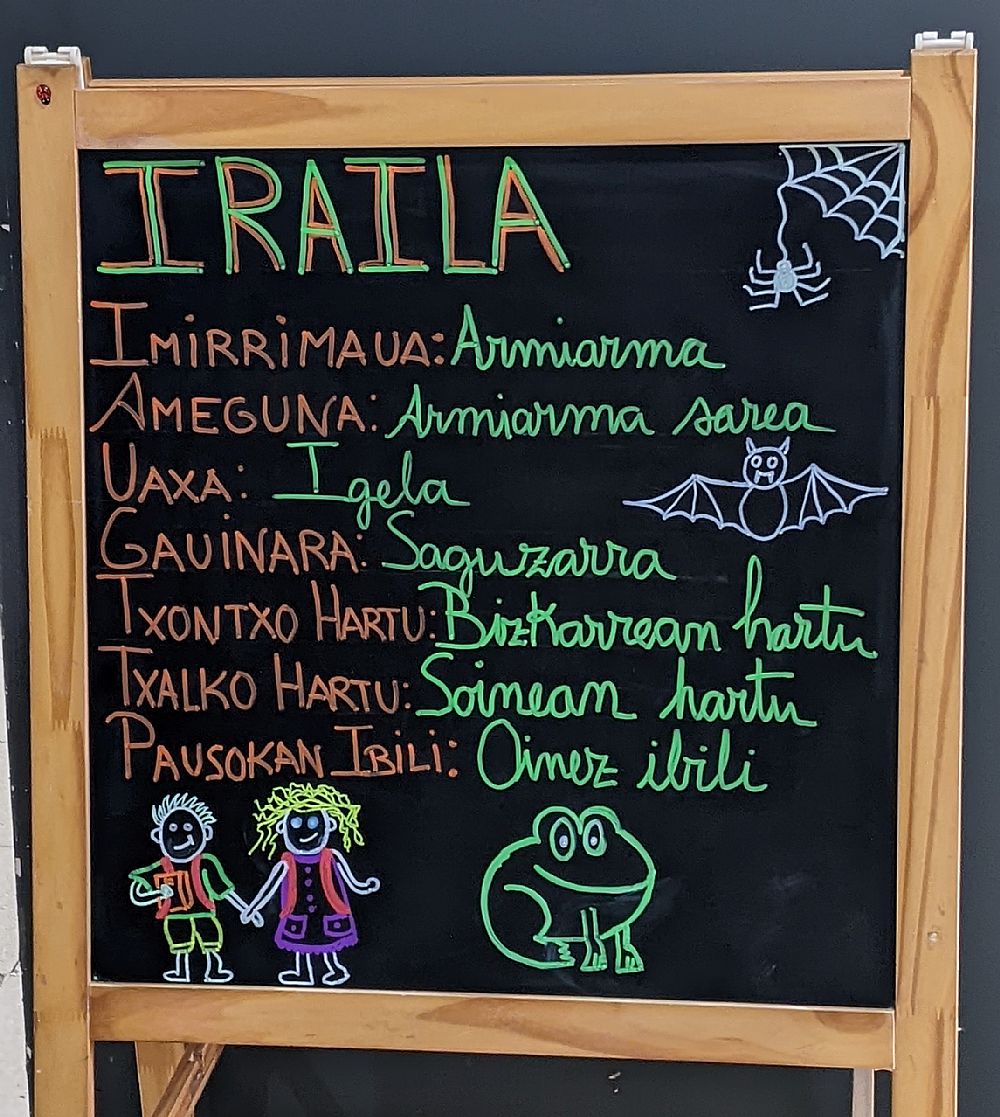 IRAILA
IMIRRIMAUA: Armiarma
AMEGUNA: Armiarma sarea
UAXA: Igela
GAUINARA: Saguzarra
TXONTXO HARTU: Bizkarrean hartu
TXALKO HARTU: Soinean hartu
PAUSOKAN IBILI: Oinez ibili